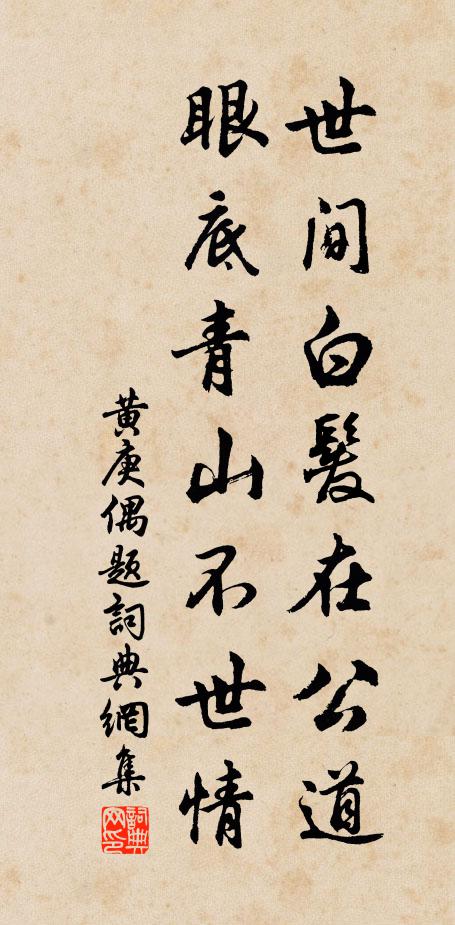 世間白髮在公道
眼底青山不世情
黄庚偶題詞典網集
詞典网印